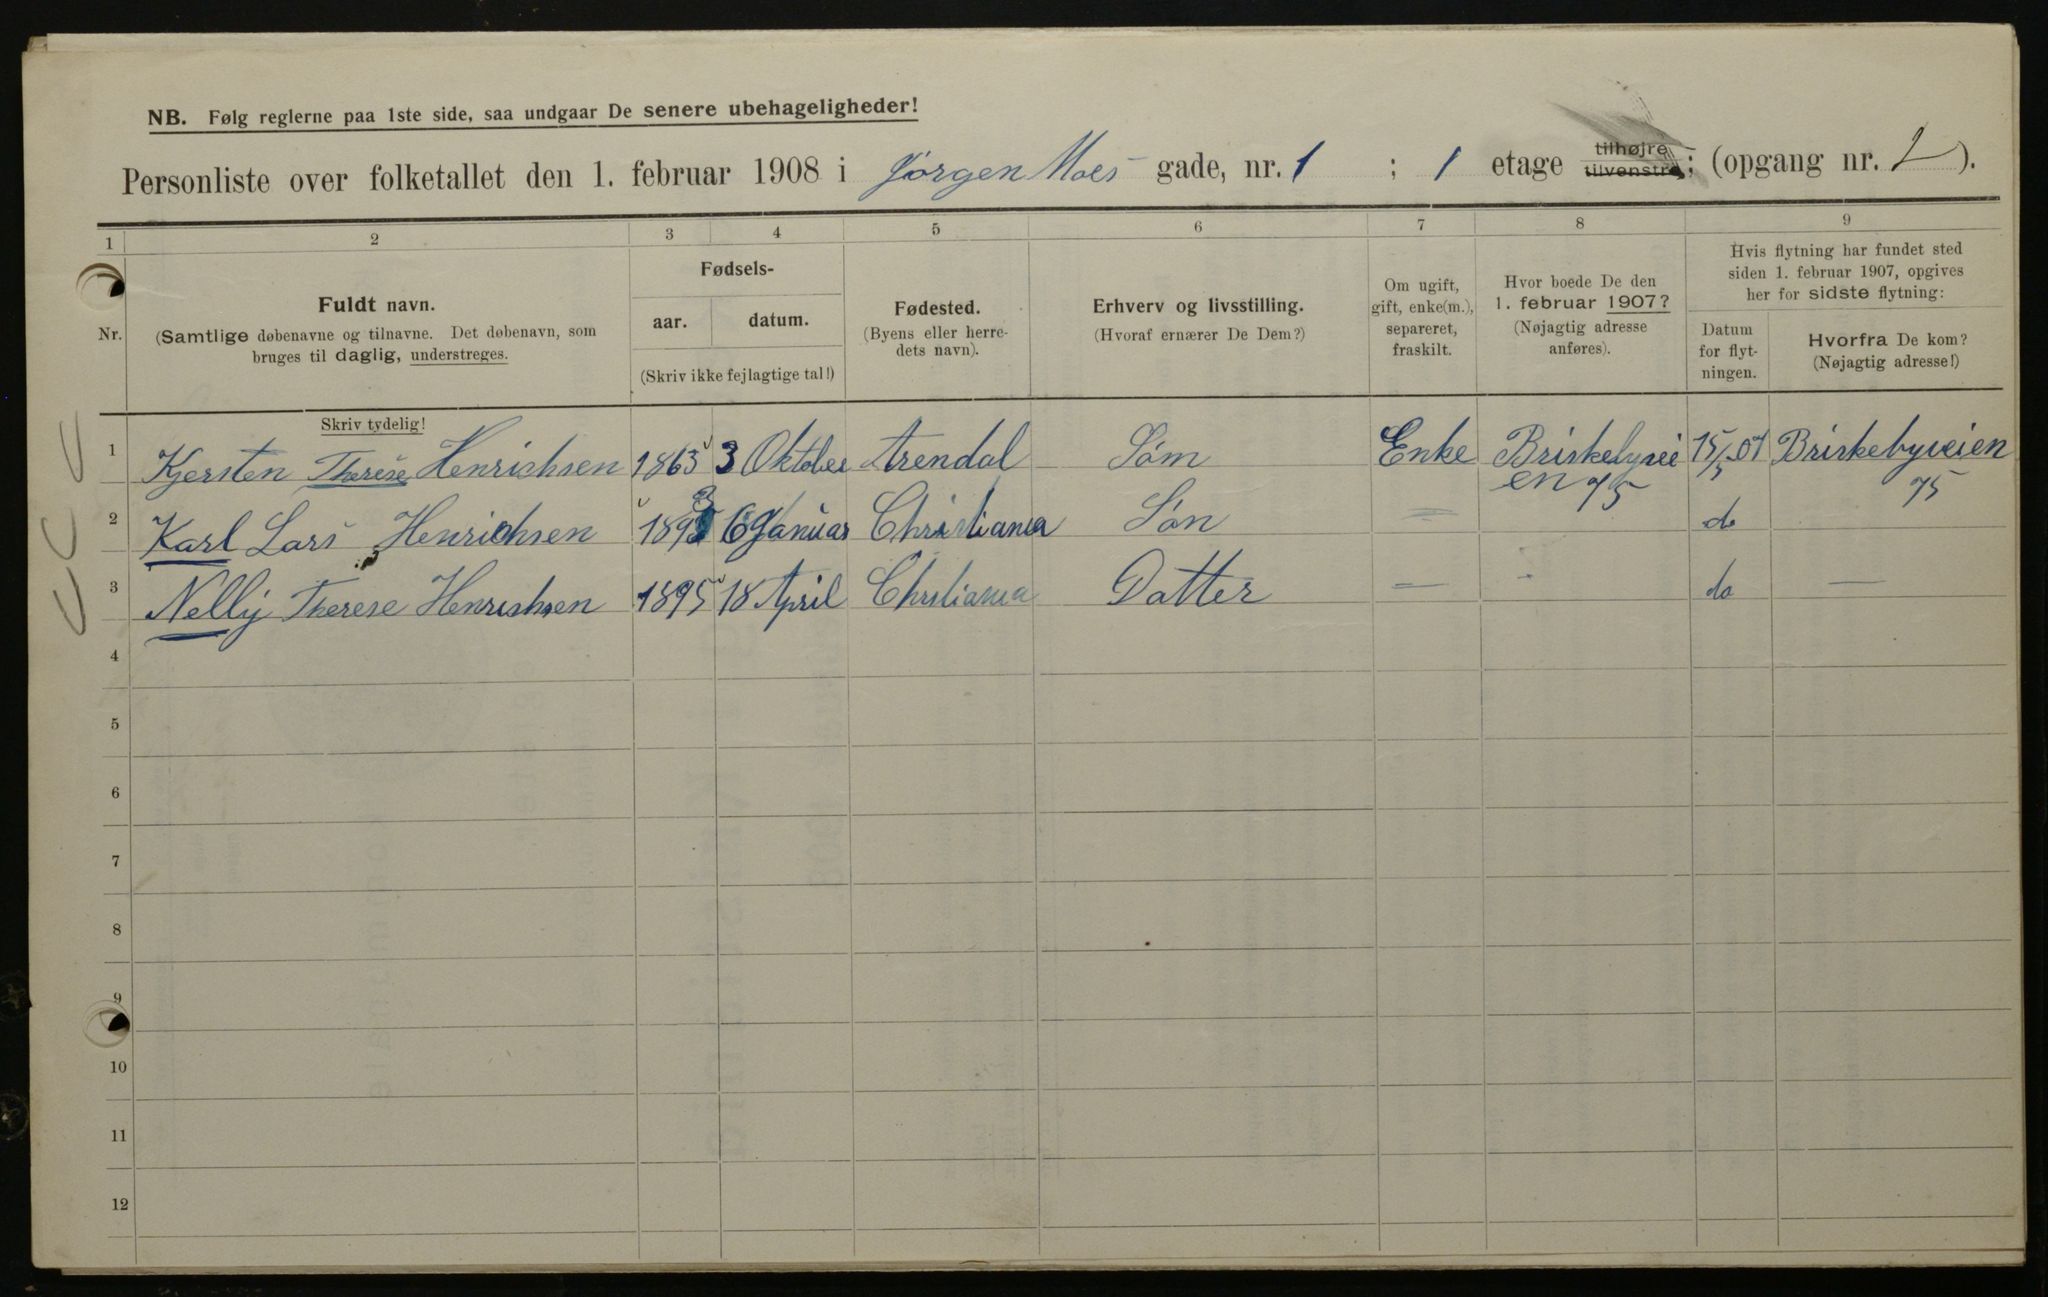 NB. Følg reglerne paa 1ste side, saa undgaar De senere ubehageligheder!
Personliste over folketallet den 1. februar 1908 i Jørgen Moes gade, nr. 1 ; 1 etage tilhøjre tilvenstre; (opgang nr. 2).
1 2 3 4 5 6 7 8 9
Nr.
Fuldt navn.
(Samtlige døbenavne og tilnavne. Det døbenavn, som
bruges til daglig, understreges.
Skriv tydelig!
Fødsels-
aar. datum.
(Skriv ikke fejlagtige tal!)
Fødested.
(Byens eller herre-
dets navn).
Erhverv og livsstilling.
(Hvoraf ernærer De Dem?)
Om ugift,
gift, enke(m.),
separeret,
fraskilt.
Hvor boede De den
1. februar 1907?
(Nøjagtig adresse
anføres).
Hvis flytning har fundet sted
siden 1. februar 1907, opgives
her for sidste flytning:
Datum
for flyt-
ningen.
Hvorfra De kom?
(Nøjagtig adresse!)
1 Kjersten Therese Henrichsen 1863 3 Oktober Arendal Søm Enke Briskebyvei 15/5 07 Briskebyveien
en 75 75
2 Karl Lars Henrichsen 1893 6 Januar Christiania Søn — do
3 Nelly Therese Henrichsen 1895 18 April Chrstiania Datter — - do —
4
5
6
7
8
9
10
11
12